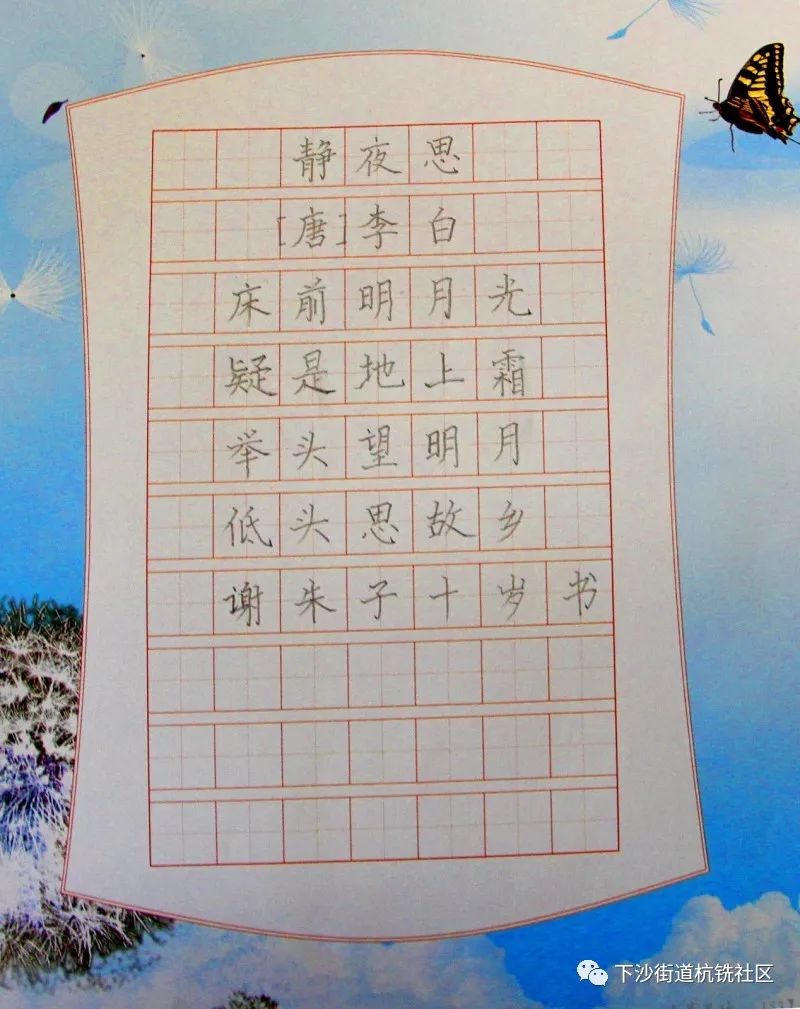 静夜思
[唐]李白
床前明月光
疑是地上霜
举头望明月
低头思故乡
谢朱子十岁书
下沙街道杭铣社区